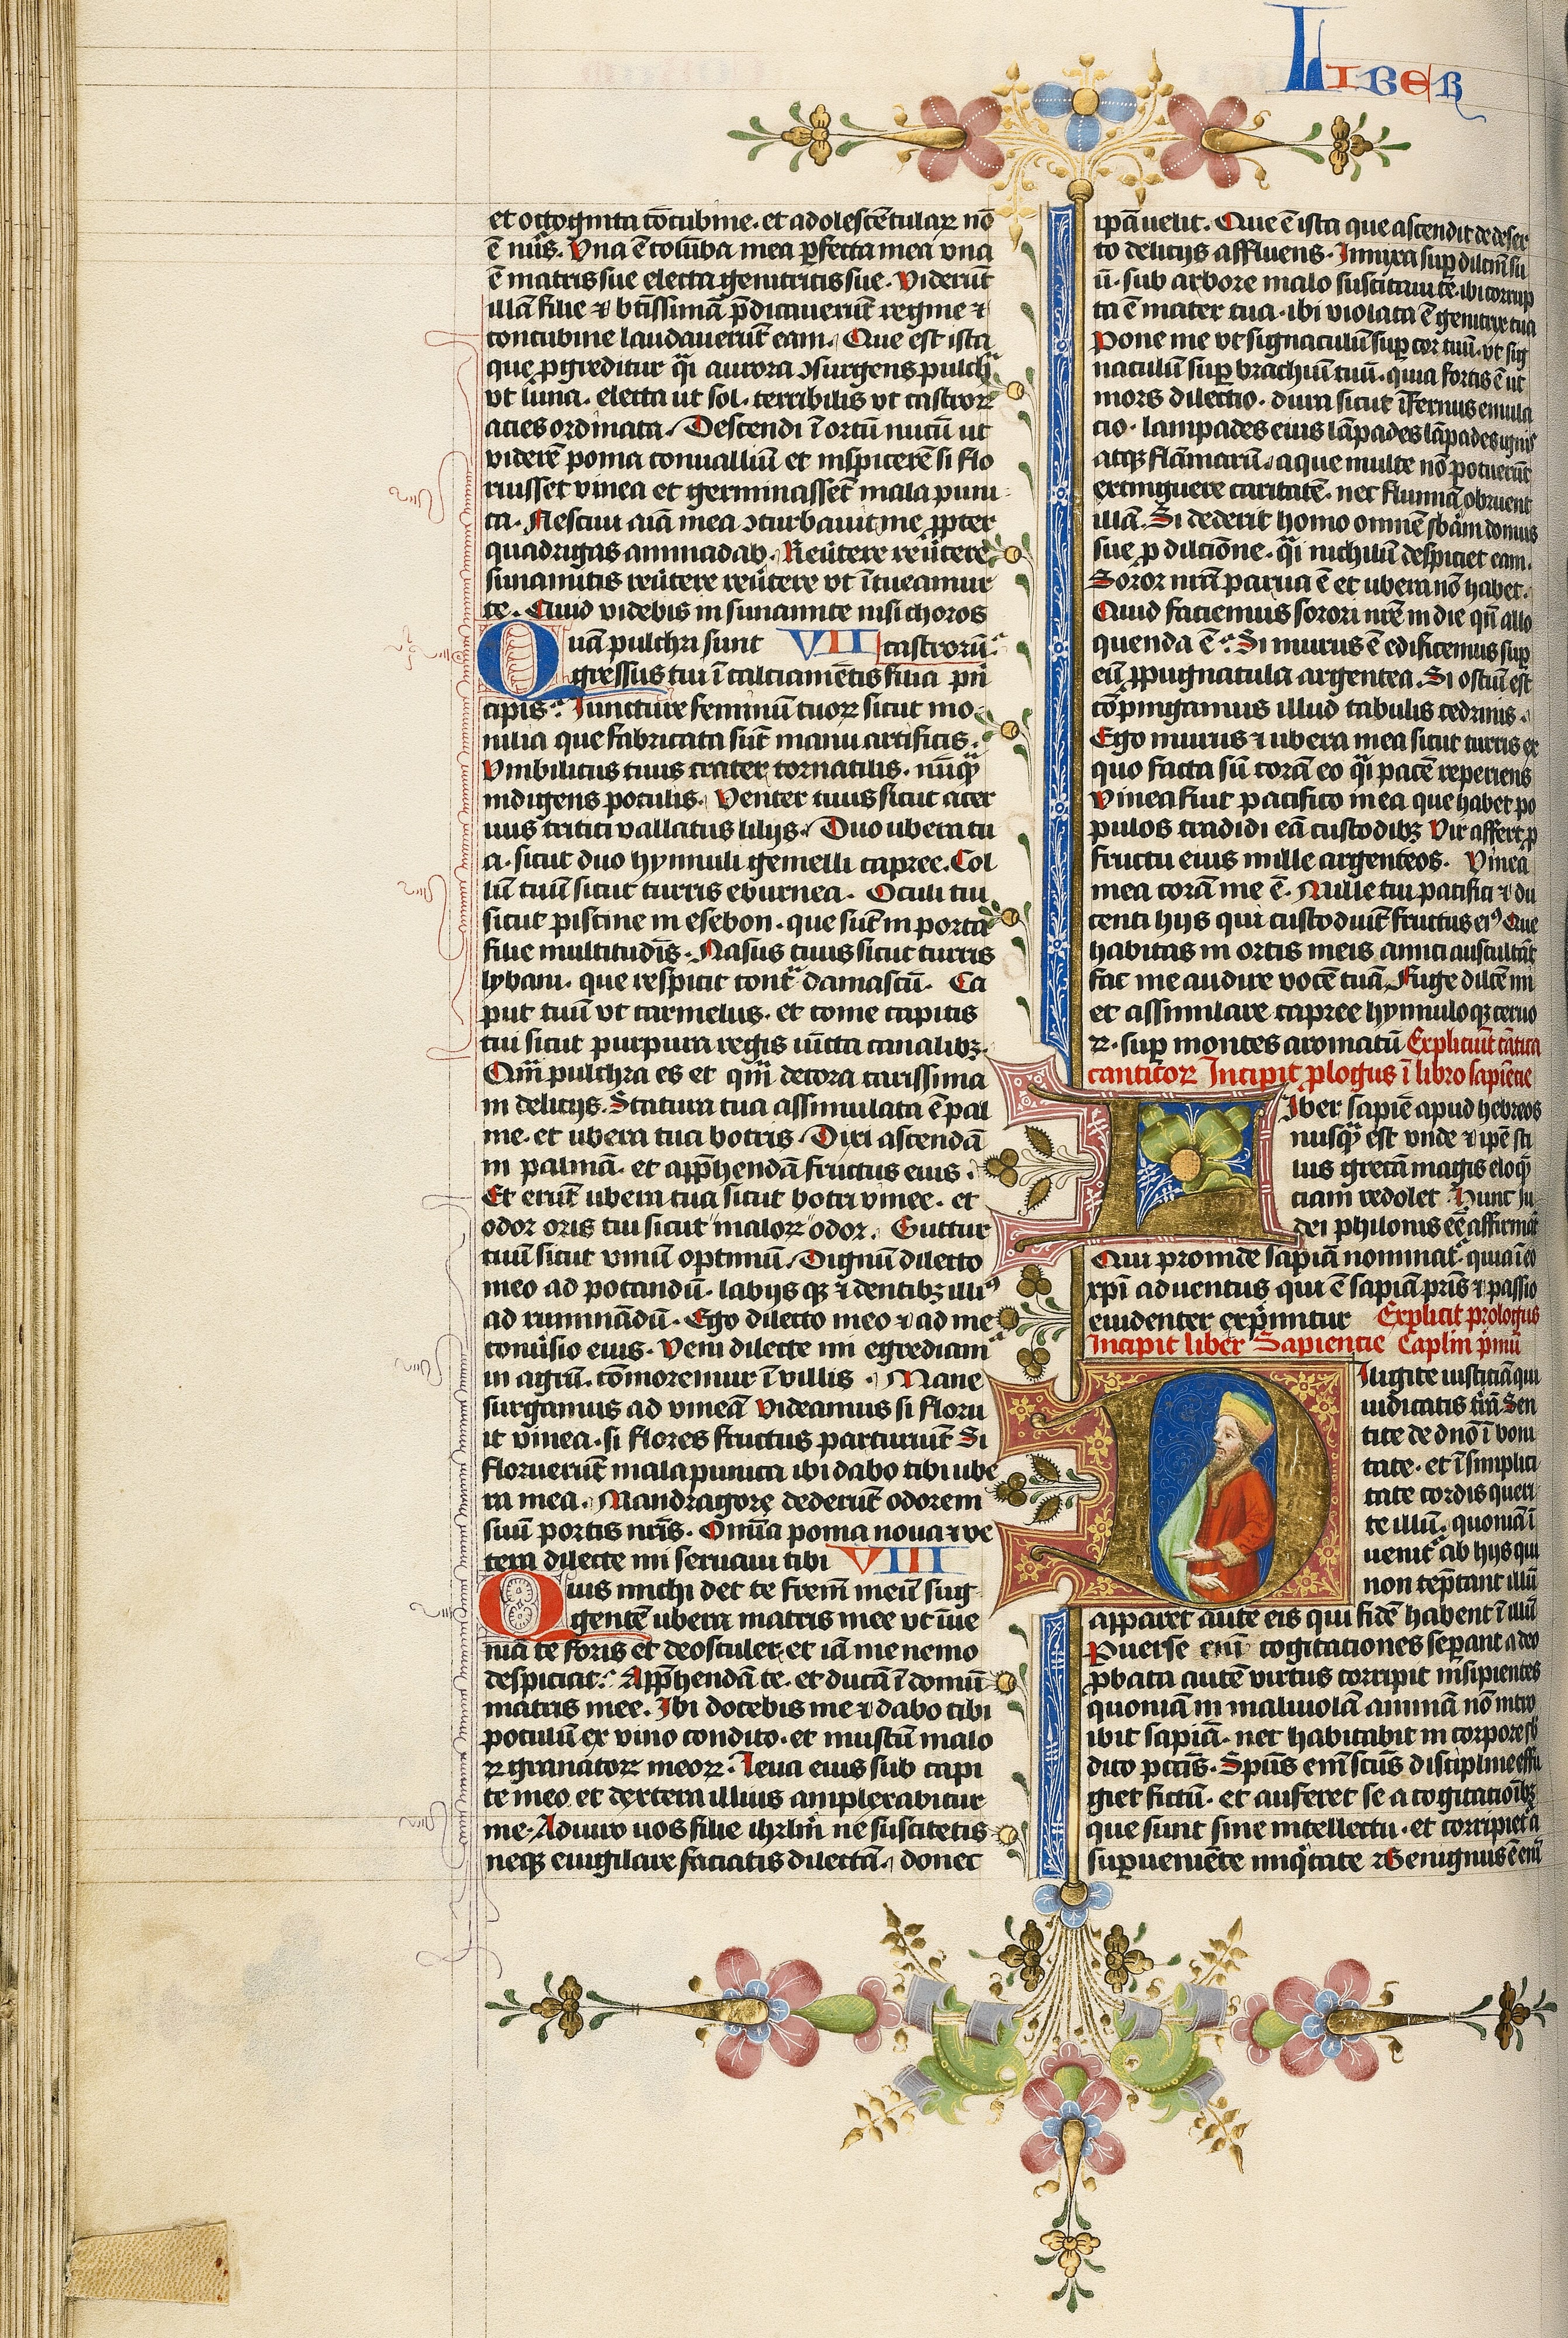 LIBER
et octoginta cōcubine. et adolescētularꝝ nō
ē nūs. Vna ē colūba mea ꝑfecta mea vna
ē matris sue electa genitricis sue. Viderūt
illā filie ⁊ btīssimā p̄dicauerūt regine ⁊
concubine laudauerūt eam. Que est ista
que ꝓgreditur q̄i aurora ↄsurgens pulchͣ
vt luna. electa ut sol. terribilis vt castroꝝ
acies ordinata. Descendi ī ortū nucū ut
viderē poma conualliū et inspicerē si flo
ruisset vinea et germinassēt mala puni
ca. Nesciui aīa mea ↄturbauit me ꝓpter
quadrigas aminadab. Reūtere reūtere
sunamitis reūtere reūtere vt ītueamur
te. Quid videbis in sunamite nisi choros
Quā pulchri sunt VII castrorū
gressus tui ī calciamētis filia pri
cipis. Iuncture feminū tuoꝝ sicut mo
nilia que fabricata sūt manu artificis.
Vmbilicus tuus crater tornatilis. nūq̄
indigens poculis. Venter tuus sicut acer
uus tritici vallatus lilijs. Duo ubera tu
a. sicut duo hynnuli gemelli capree. Col
lū tuū sicut turris eburnea. Oculi tui
sicut piscine in esebon. que sūt in porta
filie multitudīs. Nasus tuus sicut turris
lybani. que respicit contͣ damascū. Ca
put tuū vt carmelus. et come capitis
tui sicut purpura regis iūcta canalibꝫ.
Qm̄ pulchra es et qm̄ decora carissima
in delicijs. Statura tua assimulata ē pal
me. et ubera tua botris. Dixi ascendā
in palmā. et app̄hendā fructus eius.
Et erūt ubera tua sicut botri vinee. et
odor oris tui sicut maloꝝ odor. Guttur
tuū sicut vinū optimū. Dignū dilecto
meo ad potandū. labijs qꝫ ⁊ dentibꝫ illiꝰ
ad ruminādū. Ego dilecto meo ⁊ ad me
conūsio eius. Veni dilecte mi egrediamͬ
in agrū. cōmoremur ī villis. Mane
surgamus ad vineā videamus si floru
it vinea. si flores fructus parturiūt Si
floruerūt mala punica ibi dabo tibi ube
ra mea. Mandragorę dederūt odorem
suū portis nrīs. Omīa poma noua ⁊ ve
tera dilecte mi seruaui tibi VIII
Quis michi det te frem̄ meū sug
gentē ubera matris mee vt īue
niā te foris et deosculer. et iā me nemo
despiciat. App̄hendā te. et ducā ī domū
matris mee. Ibi docebis me ⁊ dabo tibi
poculū ex vino condito. et mustū malo
ꝝ granatoꝝ meoꝝ. Leua eius sub capi
te meo et dextera illius amplexabitur
me. Adiuro uos filie ihrlm̄ ne suscitetis
neqꝫ euigilare faciatis dilectā. donec
ipā uelit. Que ē ista que ascendit de deser
to delicijs affluens. Innixa suꝑ dilcm̄ su
ū. sub arbore malo suscitaui te. ibi corrup
ta ē mater tua. ibi violata ē genitrix tua
Pone me vt signaculū suꝑ cor tuū. vt sig
naculū suꝑ brachiū tuū. quia fortis ē ut
mors dilectio. dura sicut īfernus emula
cio. lampades eius lāpades lāpades ignis
atqꝫ flāmarū. aque multe nō potuerūt
extinguere caritatē. nec flumīa obruent
illā. Si dederit homo omnē sbām domus
sue ꝓ dilcione. q̄i nichilū despiciet eam.
Soror nrā parua ē et ubera nō habet.
Quid faciemus sorori nrē in die qn̄ allo
quenda ē. Si murus ē edificemus suꝑ
eū ꝓpugnacula argentea. Si ostiū est
cōpingamus illud tabulis cedrinis.
Ego murus ⁊ ubera mea sicut turris ex
quo facta sū corā eo q̄i pacē reperiens
Vinea fiut pacifico mea que habet po
pulos tradidi eā custodibꝫ Vir affert ꝓ
fructu eius mille argenteos. Vinea
mea corā me ē. Mille tui pacifici ⁊ du
centi hijs qui custodiūt fructus eiꝰ Que
habitas in ortis meis amici auscultāt
fac me audire vocē tuā. Fuge dilcē mi
et assimilare capree hynnulo qꝫ ceruo
ꝝ. suꝑ montes aromatū Expliciūt cātica
canticoꝝ Incipit ꝓlogus ī libro sapiēcie
Liber sapiē apud hebreos
nusq̄ est vnde ⁊ ipē sti
lus grecā magis eloq̄
ciam redolet. Hunc iu
dei philonis eē affirmāt
Qui proinde sapiā nominat. quia ī eo
xpī aduentus qui ē sapiā pris̄ ⁊ passio
euidenter exp̄imitur Explicit prologus
Incipit liber Sapiencie Caplm̄ p̄mū
Diligite iusticiā qui
iudicatis trā̄ Sen
tite de dnō ī boni
tate. et ī simplici
tate cordis queri
te illū. quoniā ī
uenitͬ ab hijs qui
non tēptant illū
apparet autē eis qui fidē habent ī illū
Puerse enī cogitaciones sepant a deo
ꝓbata autē virtus corripit insipientes
quoniā in maliuolā animā nō intro
ibit sapiā. nec habitabit in corpore sb
dito pcc̄is. Spūs enī scūs discipline effu
giet fictū. et auferet se a cogitacioībꝫ
que sunt sine intellectu. et corripiet̄ a
suꝑueniēte iniq̄tate ⁊ Benignus ē enī